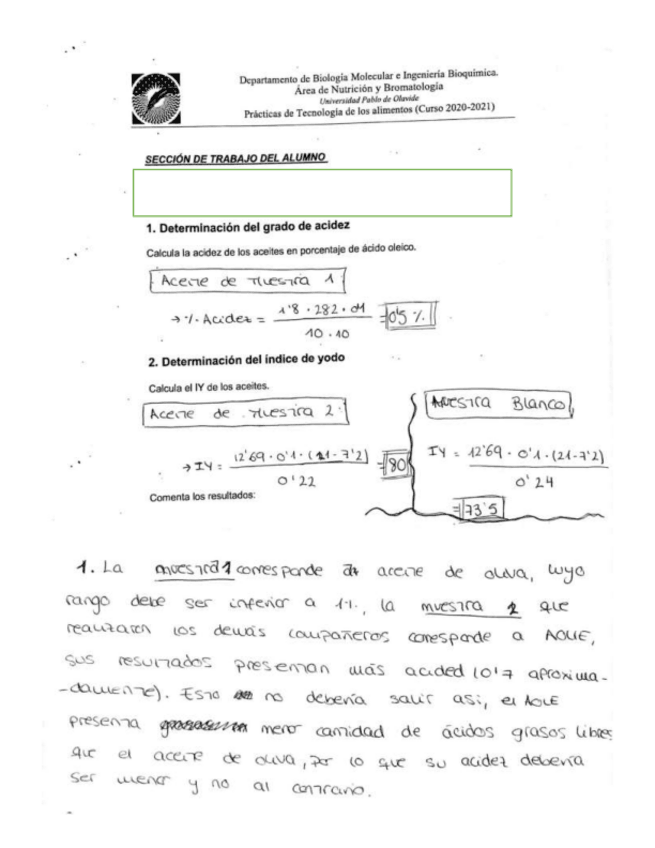 Departamento de Biología Molecular e Ingeniería Bioquímica.
Área de Nutrición y Bromatología
Universidad Pablo de Olavide
Prácticas de Tecnología de los alimentos (Curso 2020-2021)
SECCIÓN DE TRABAJO DEL ALUMNO
1. Determinación del grado de acidez
Calcula la acidez de los aceites en porcentaje de ácido oleico.
Aceite de Muestra 1
→ % Acidez = 1'8 · 282 · 0'1 / 10 · 10 = 0'5 %
2. Determinación del índice de yodo
Calcula el IY de los aceites.
Aceite de Muestra 2
→ IY = 12'69 · 0'1 · (21-7'2) / 0'22 = 80
Comenta los resultados:
Muestra Blanco
IY = 12'69 · 0'1 · (21-7'2) / 0'24
= 73'5
1. La muestra 1 corresponde a aceite de oliva, cuyo
rango debe ser inferior a 1%, la muestra 2 que
realizaron los demás compañeros corresponde a AOVE,
sus resultados presentan más acided (0'7 aproxima-
-damente). Esto no debería salir así, el AOVE
presenta menor cantidad de ácidos grasos libres
que el aceite de oliva, por lo que su acidez debería
ser menor y no al contrario.